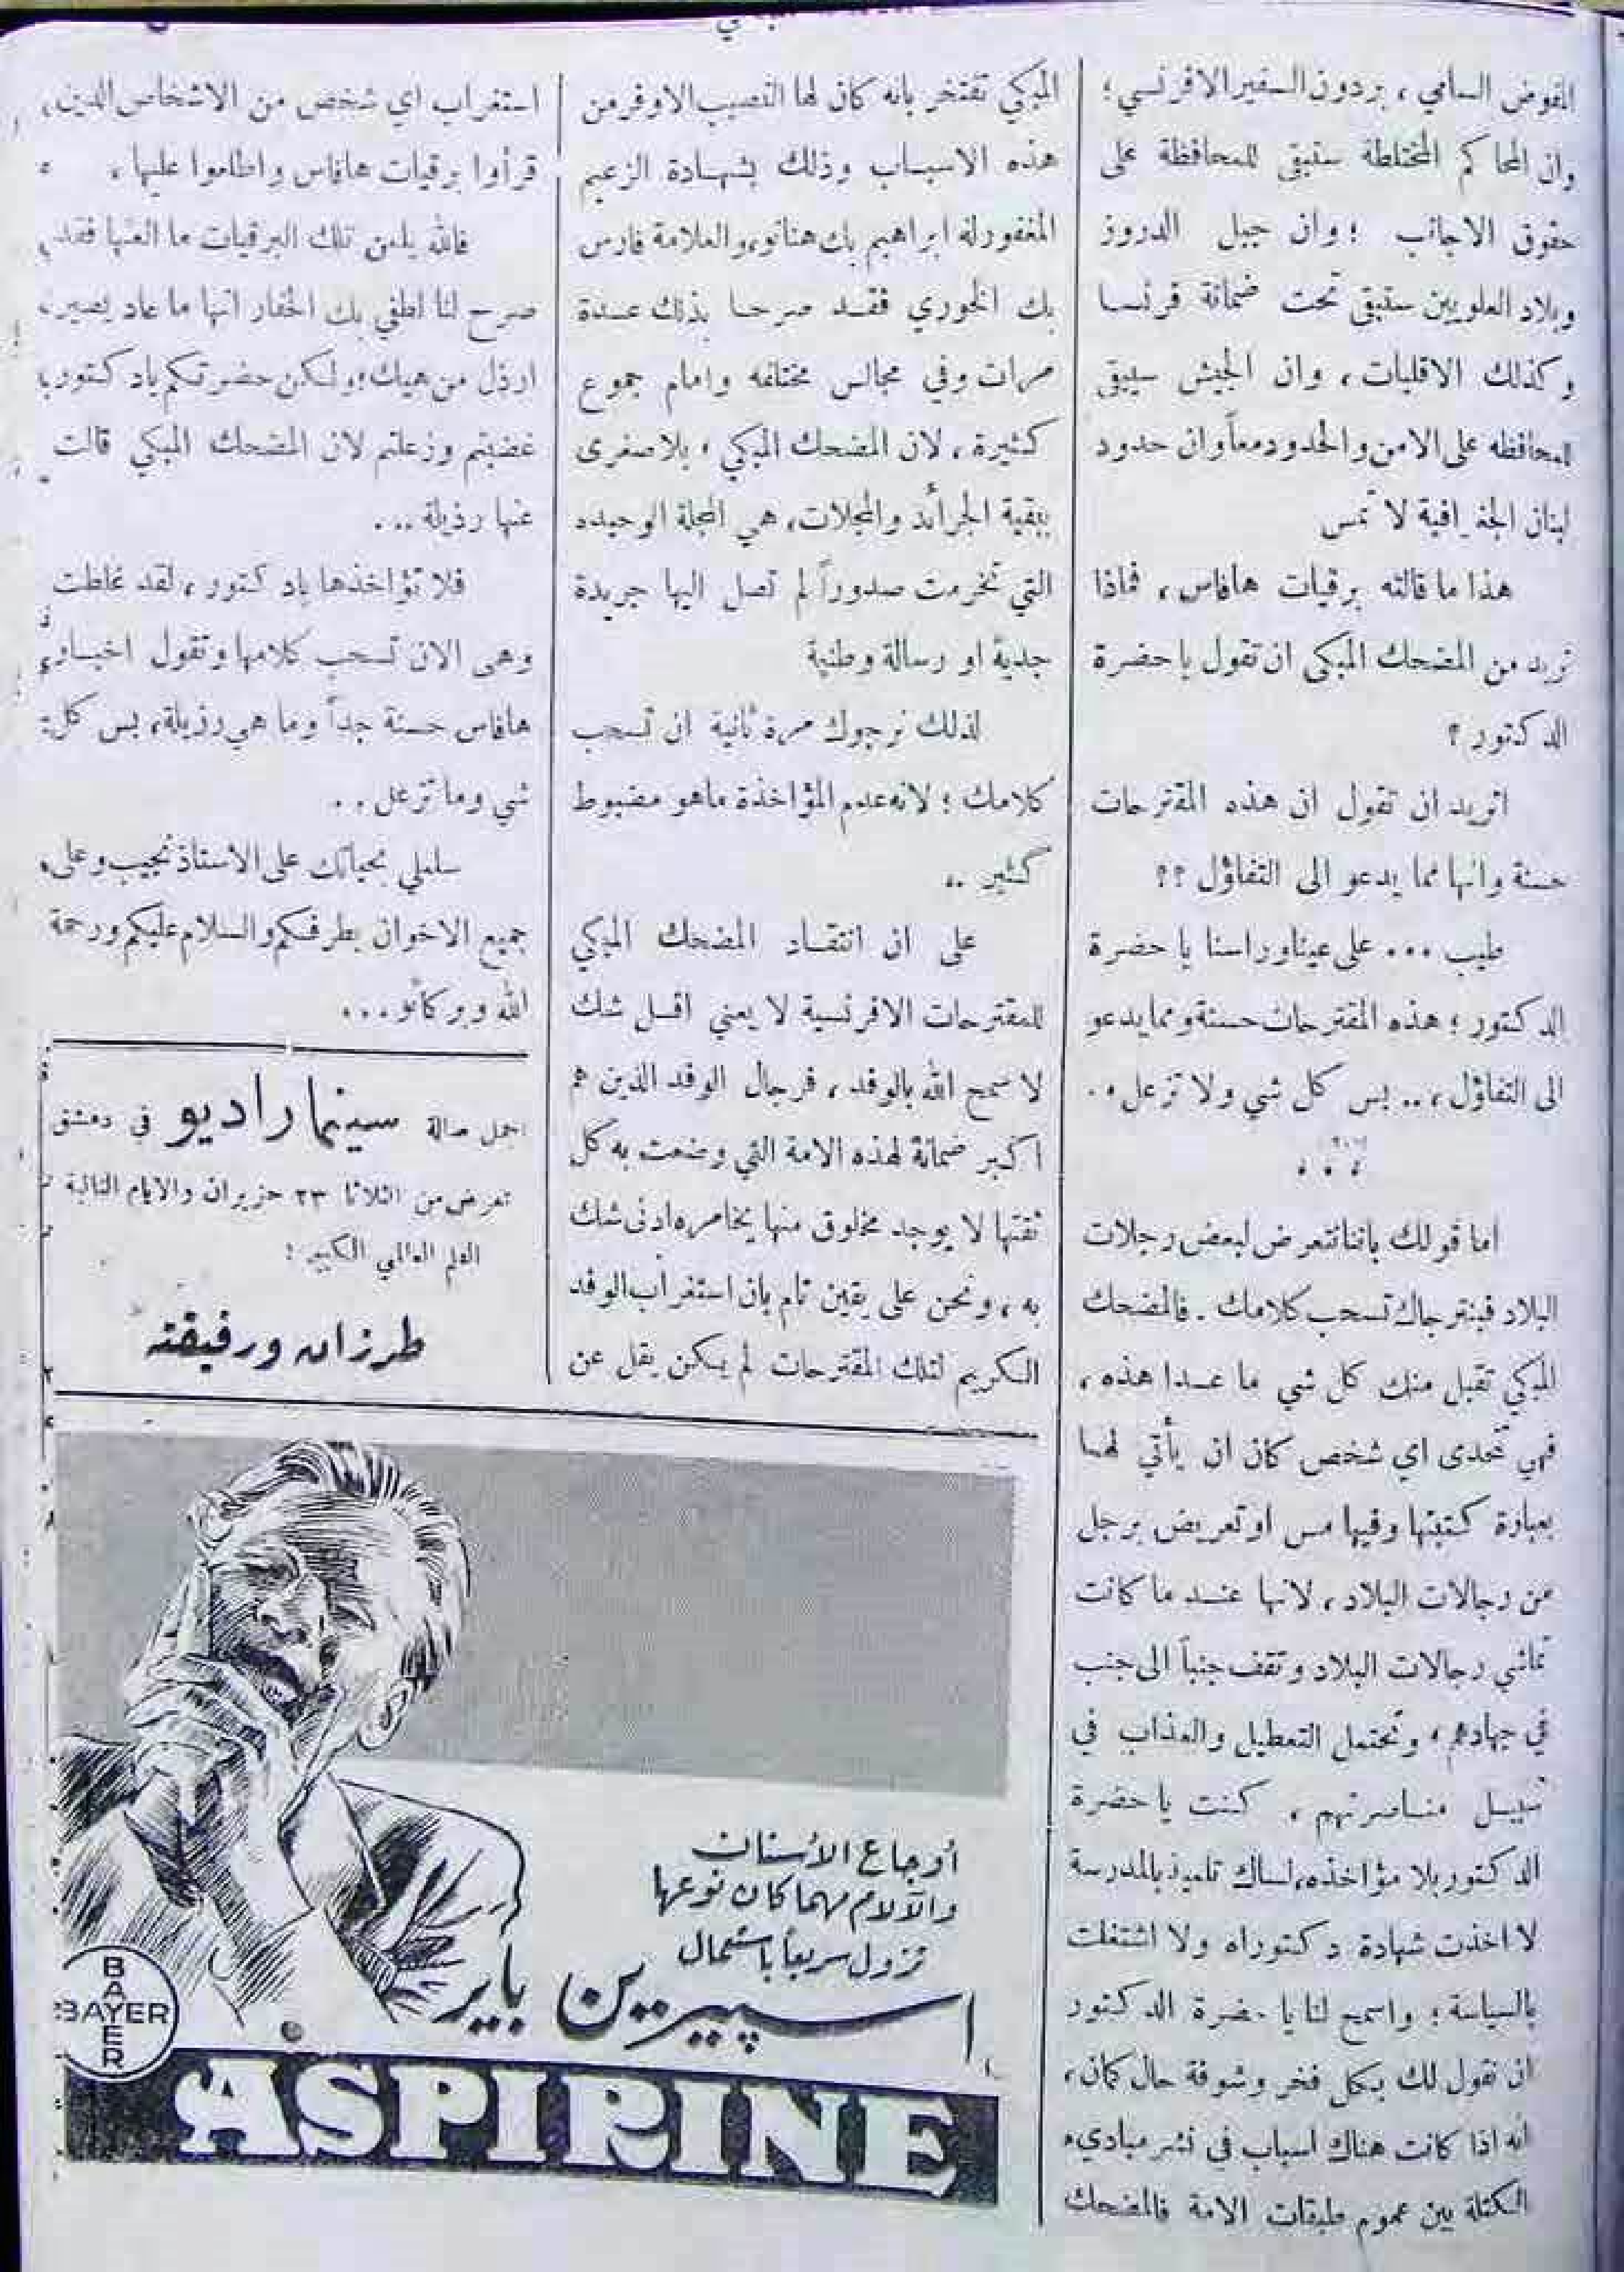 المفوض السامي ، بردون السفير الافرنسي ؛
وان المحاكم المختلطة ستبقى للمحافظة على
حقوق الاجانب ؛ وان جبل الدروز
وبلاد العلويين ستبقى تحت ضمانة فرنسا
وكذلك الاقليات ، وان الجيش سيبقى
لمحافظه على الامن والحدود معاً وان حدود
لبنان الجغرافية لا تمس
هذا ما قالته برقيات هافاس ، فماذا
تريد من المضحك المبكي ان تقول يا حضرة
الدكتور ؟
اتريد ان تقول ان هذه المقترحات
حسنة وانها مما يدعو الى التفاؤل ؟؟
طيب ... على عينا وراسنا يا حضرة
الدكتور ؛ هذه المقترحات حسنة ومما يدعو
الى التفاؤل ، .. بس كل شي ولا تزعل ..
اما قولك باننا نتعرض لبعض رجلات
البلاد فنترجاك تسحب كلامك . فالمضحك
المبكي تقبل منك كل شي ما عدا هذه ،
فهي تتحدى اي شخص كان ان يأتي لها
بعبارة كتبتها وفيها مس او تعريض برجل
من رجالات البلاد ، لانها عند ما كانت
تماشي رجالات البلاد وتقف جنباً الى جنب
في جهادهم ، وتحتمل التعطيل والعذاب في
سبيل مناصرتهم ، كنت يا حضرة
الدكتور بلا مؤاخذه ، لساك تلميذ بالمدرسة
لا اخذت شهادة دكتوراه ولا اشتغلت
بالسياسة ؛ واسمح لنا يا حضرة الدكتور
ان نقول لك بكل فخر وشوفة حال كمان ،
انه اذا كانت هناك اسباب في نشر مبادىء
الكتلة بين عموم طبقات الامة فالمضحك
المبكي تفتخر بانه كان لها النصيب الاوفر من
هذه الاسباب وذلك بشهادة الزعيم
المغفور له ابراهيم بك هنانو ، والعلامة فارس
بك الخوري فقد صرحا بذلك عدة
مرات وفي مجالس مختلفه وامام جموع
كثيرة ، لان المضحك المبكي ، بلا صغرى
ببقية الجرائد والمجلات ، هي المجلة الوحيده
التي تخرمت صدوراً لم تصل اليها جريدة
جدية او رسالة وطنية
لذلك نرجوك مرة ثانية ان تسحب
كلامك ؛ لانه عدم المؤاخذة ما هو مضبوط
كثير ..
على ان انتقاد المضحك المبكي
للمقترحات الافرنسية لا يعني اقل شك
لا سمح الله بالوفد ، فرجال الوفد الذين هم
اكبر ضمانة لهذه الامة التي وضعت به كل
ثقتها لا يوجد مخلوق منها يخامره ادنى شك
به ، ونحن على يقين تام بان استغراب الوفد
الكريم لتلك المقترحات لم يكن يقل عن
استغراب اي شخص من الاشخاص الذين
قرأوا برقيات هافاس واطلعوا عليها .
فالله يلعن تلك البرقيات ما العنها فقد
صرح لنا لطفي بك الحفار انها ما عاد يصير
ارذل من هيك ؛ ولكن حضرتكم يا دكتور
غضبتم وزعلتم لان المضحك المبكي قالت
عنها رذيلة ...
فلا تؤاخذها يا دكتور ، لقد غلطت
وهي الان تسحب كلامها وتقول اخبار
هافاس حسنة جداً وما هي رزيلة ، بس كل
شي وما تزعل ..
سلملي بحياتك على الاستاذ نجيب وعلى
جميع الاخوان بطرفكم والسلام عليكم ورحمة
الله وبركاتو ...
اجمل صالة سينما راديو في دمشق
تعرض من الثلاثا ٢٣ حزيران والايام التالية
الفلم العالمي الكبير :
طرزان ورفيقته
أوجاع الأسنان
والآلام مهما كان نوعها
تزول سريعاً باستعمال
اسپيرين باير
BAYER
BAYER
ASPIRINE